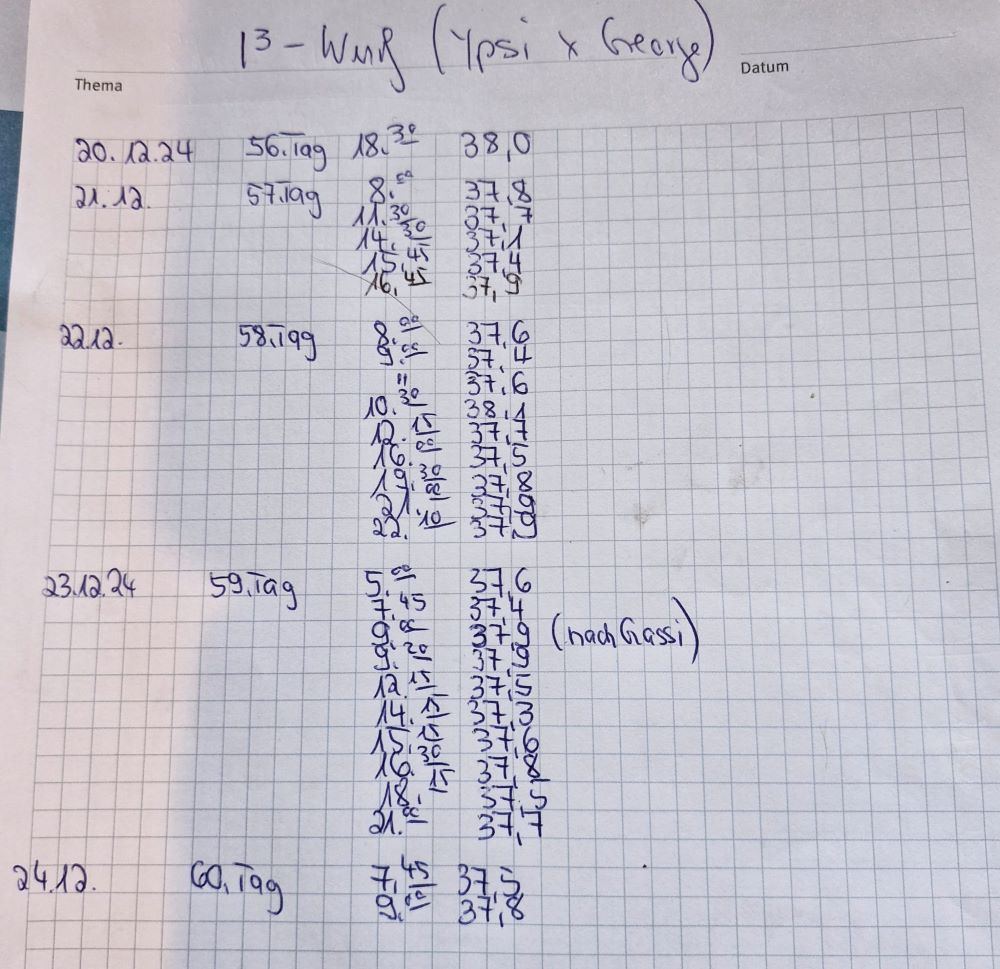 I³ - Wurf (Ypsi x George)
Thema Datum
20.12.24 56.Tag 18.30 38,0
21.12. 57.Tag 8.00 37,8
11.30 37,7
14.30 37,1
15.45 37,4
16.45 37,9
22.12. 58.Tag 8.00 37,6
9.00 37,4
" 37,6
10.30 38,1
12.15 37,7
16.00 37,5
19.30 37,8
21.00 37,9
22.10 37,9
23.12.24 59.Tag 5.00 37,6
7.45 37,4
9.00 37,9 (nach Gassi)
9.20 37,9
12.15 37,5
14.15 37,3
15.15 37,6
16.30 37,8
18.15 37,5
21.00 37,7
24.12. 60.Tag 7.45 37,5
9.00 37,8